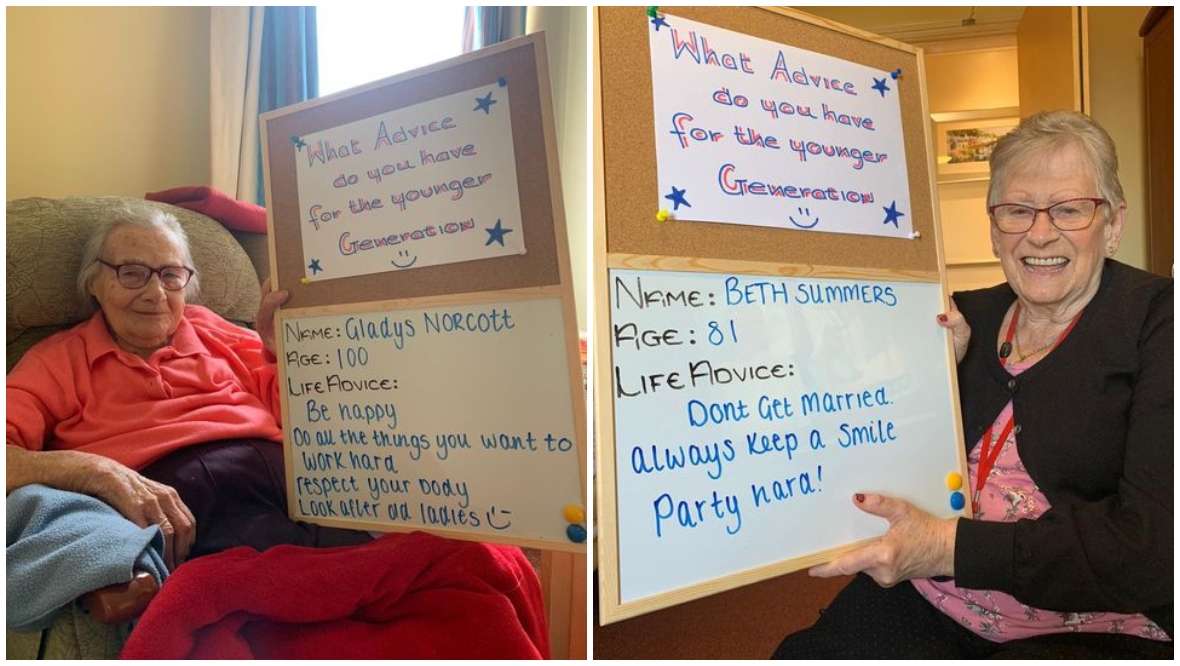 What Advice
do you have
for the younger
Generation
NAME: Gladys NORCOTT
AGE: 100
LIFE ADVICE:
Be happy
Do all the things you want to
work hard
respect your body
Look after old ladies
What Advice
do you have
for the younger
Generation
NAME: BETH SUMMERS
AGE: 81
LIFE ADVICE:
Dont Get Married.
always keep a smile
Party hard!